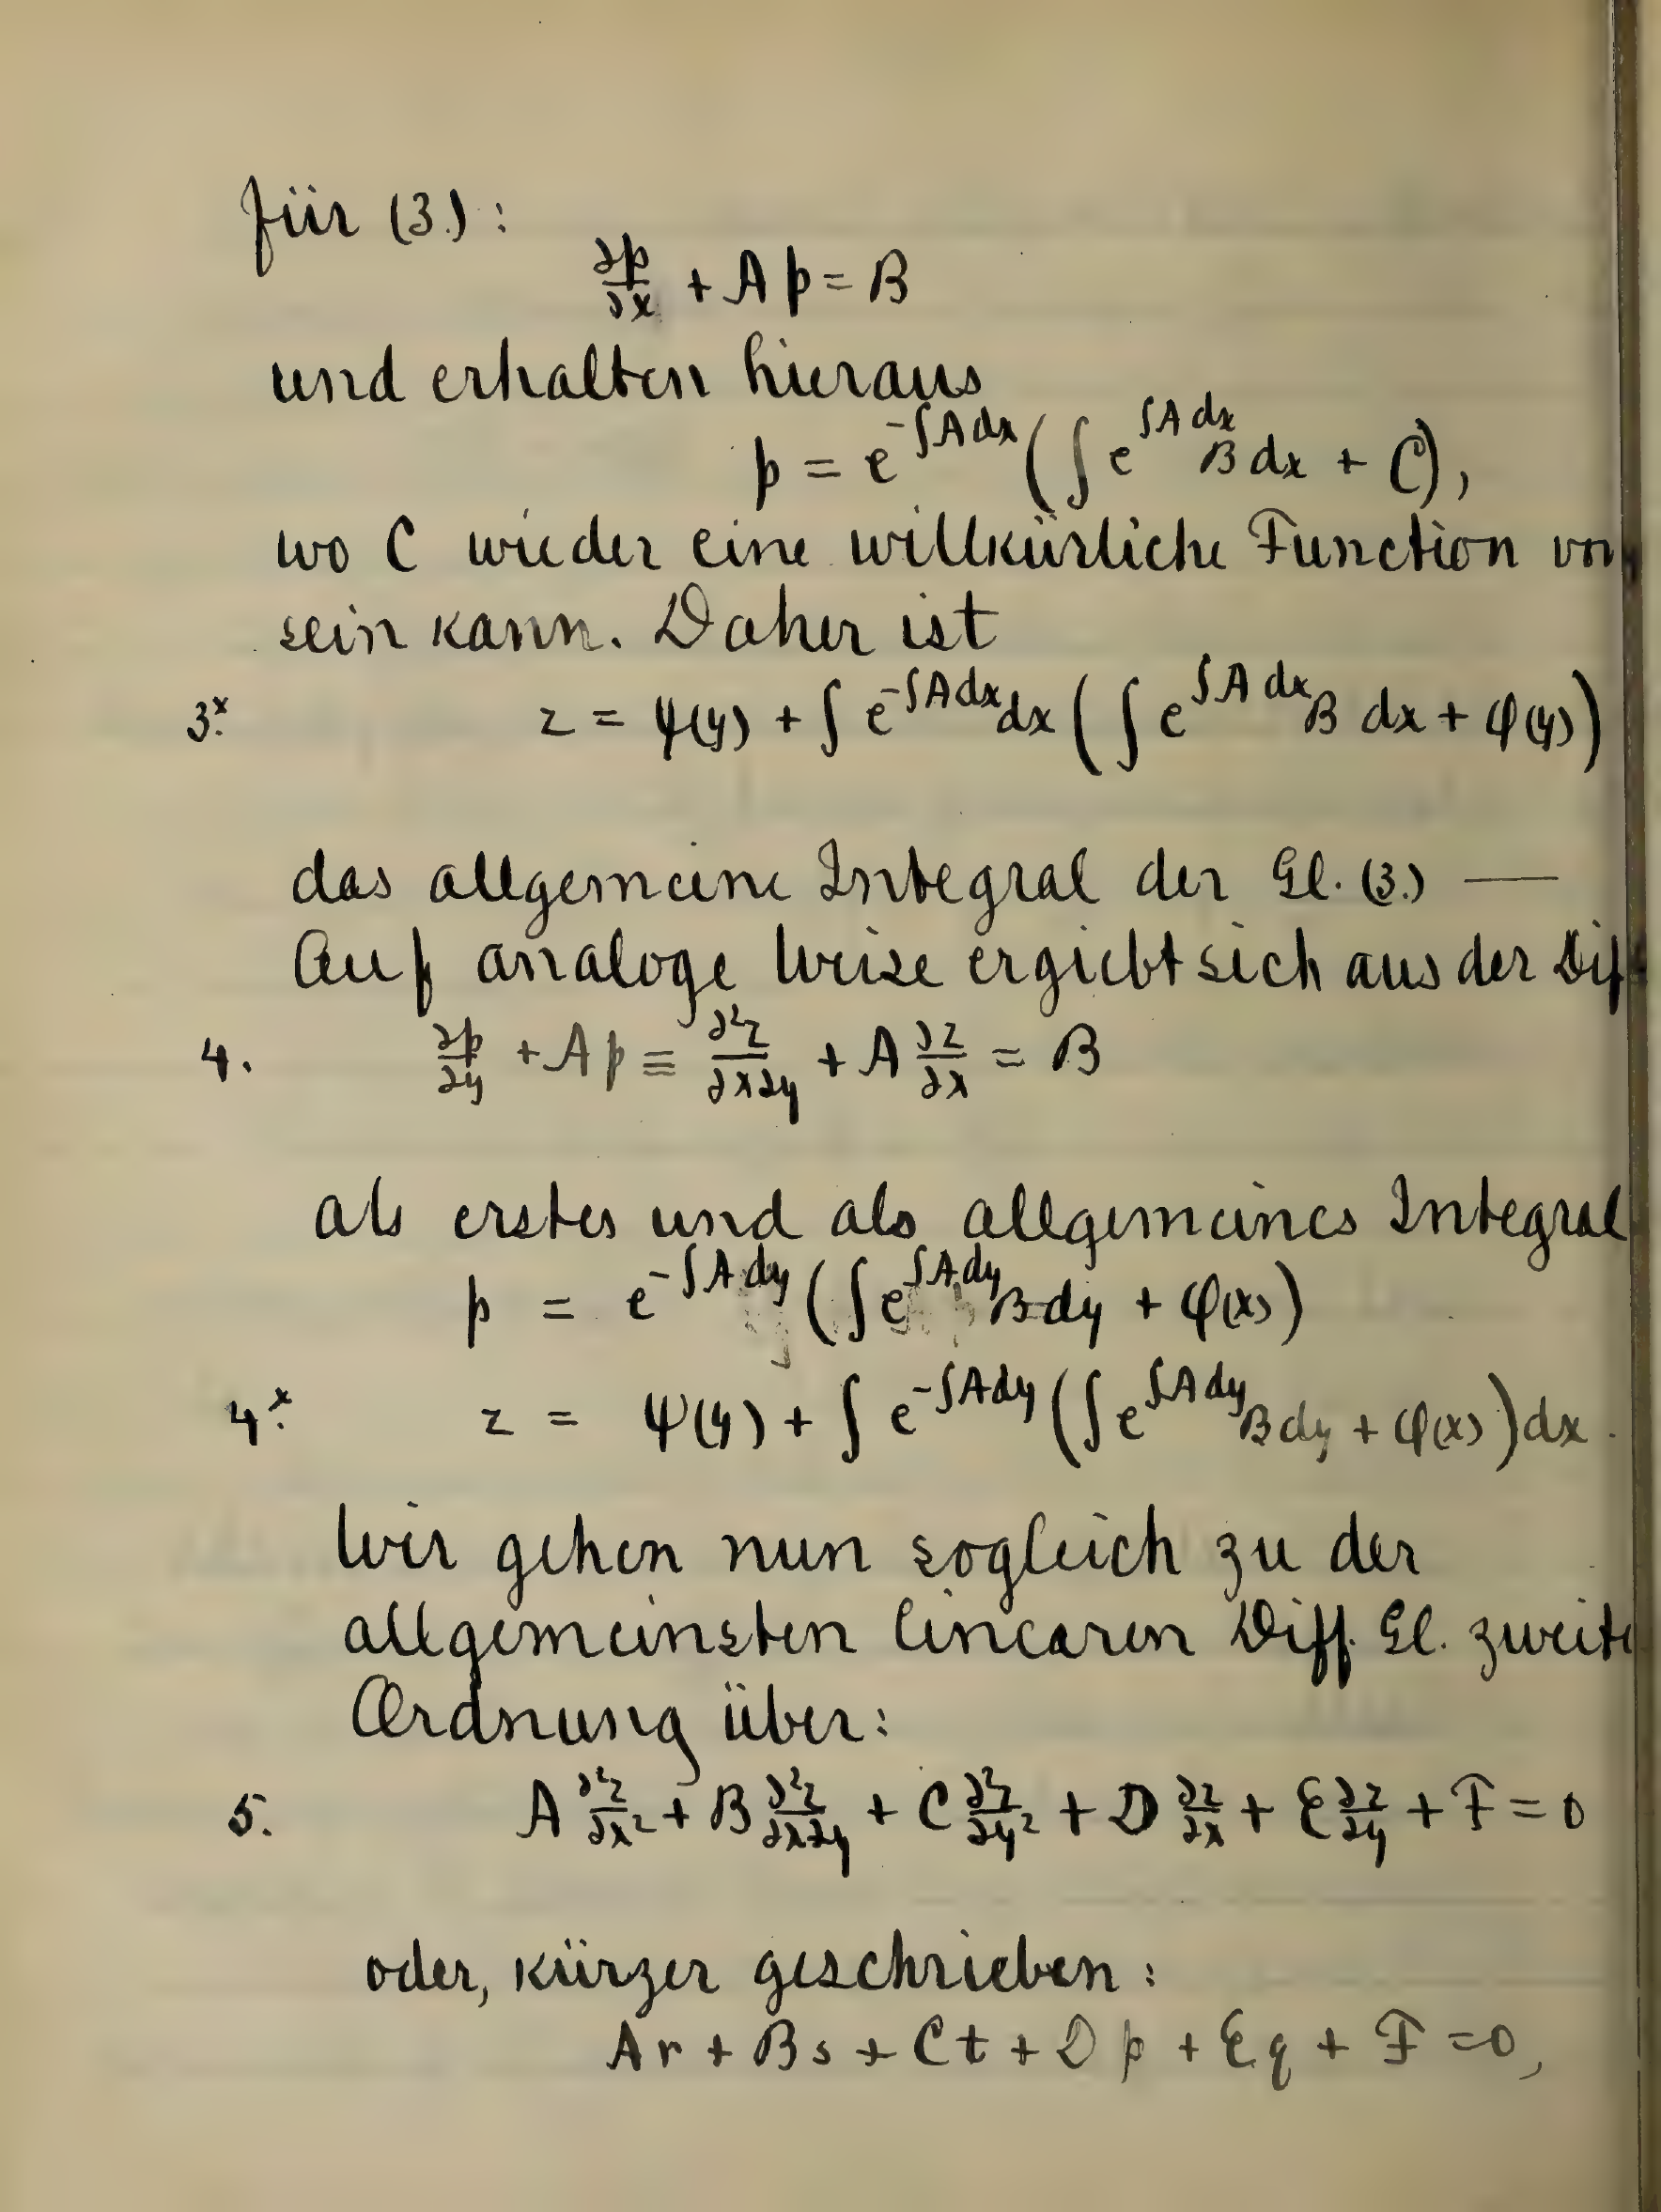 für (3.):
∂p/∂x + Ap = B
und erhalten hieraus
p = e^{-∫A dx} (∫ e^{∫A dx} B dx + C),
wo C wieder eine willkürliche Function von
sein kann. Daher ist
3.ˣ z = ψ(y) + ∫ e^{-∫A dx} dx (∫ e^{∫A dx} B dx + φ(y))
das allgemeine Integral der Gl. (3.) —
Auf analoge Weise ergiebt sich aus der Diff
4. ∂p/∂y + Ap ≡ ∂²z/∂x∂y + A ∂z/∂x = B
als erstes und als allgemeines Integral
p = e^{-∫A dy} (∫ e^{∫A dy} B dy + φ(x))
4.ˣ z = ψ(y) + ∫ e^{-∫A dy} (∫ e^{∫A dy} B dy + φ(x)) dx.
Wir gehen nun sogleich zu der
allgemeinsten linearen Diff. Gl. zweite
Ordnung über:
5. A ∂²z/∂x² + B ∂²z/∂x∂y + C ∂²z/∂y² + D ∂z/∂x + E ∂z/∂y + F = 0
oder, kürzer geschrieben:
Ar + Bs + Ct + Dp + Eq + F = 0,